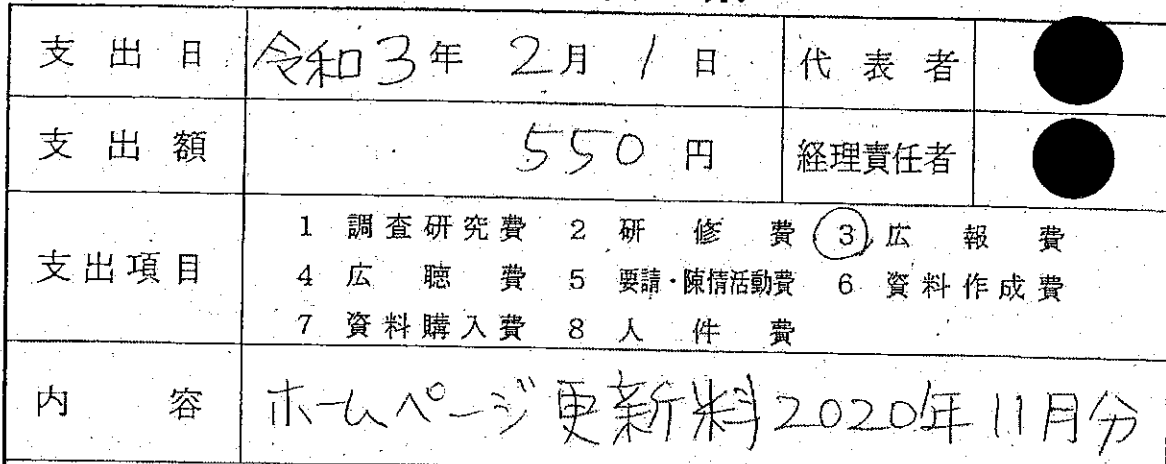 支出日 令和3年 2月 1日 代表者
支出額 550円 経理責任者
支出項目 1 調査研究費 2 研修費 3 広報費
4 広聴費 5 要請・陳情活動費 6 資料作成費
7 資料購入費 8 人件費
内容 ホームページ更新料2020年11月分